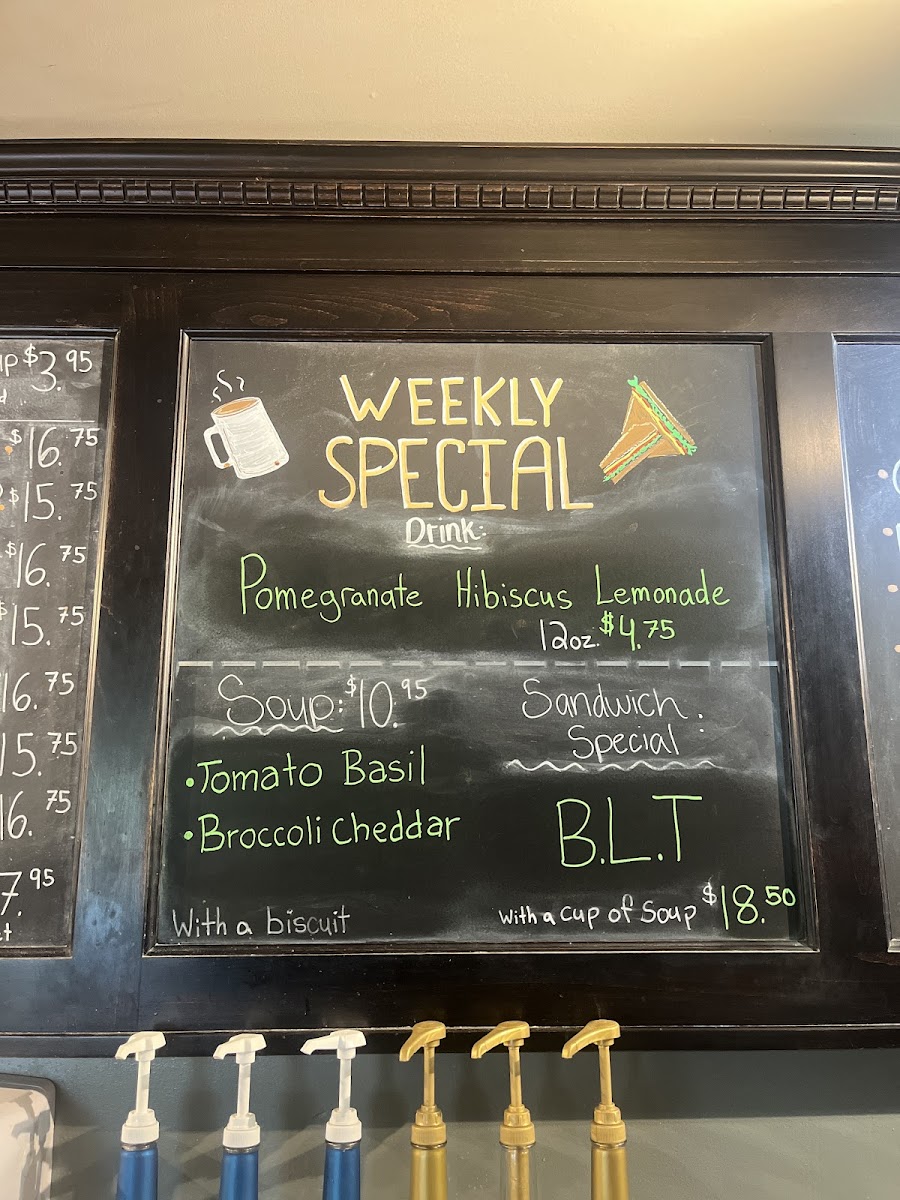 WEEKLY
SPECIAL
Drink:
Pomegranate Hibiscus Lemonade
12oz. $4.75
Soup: $10.95
• Tomato Basil
• Broccoli Cheddar
With a biscuit
Sandwich
Special:
B.L.T
With a cup of Soup $18.50
$3.95
$16.75
$15.75
$16.75
$15.75
16.75
15.75
16.75
7.95